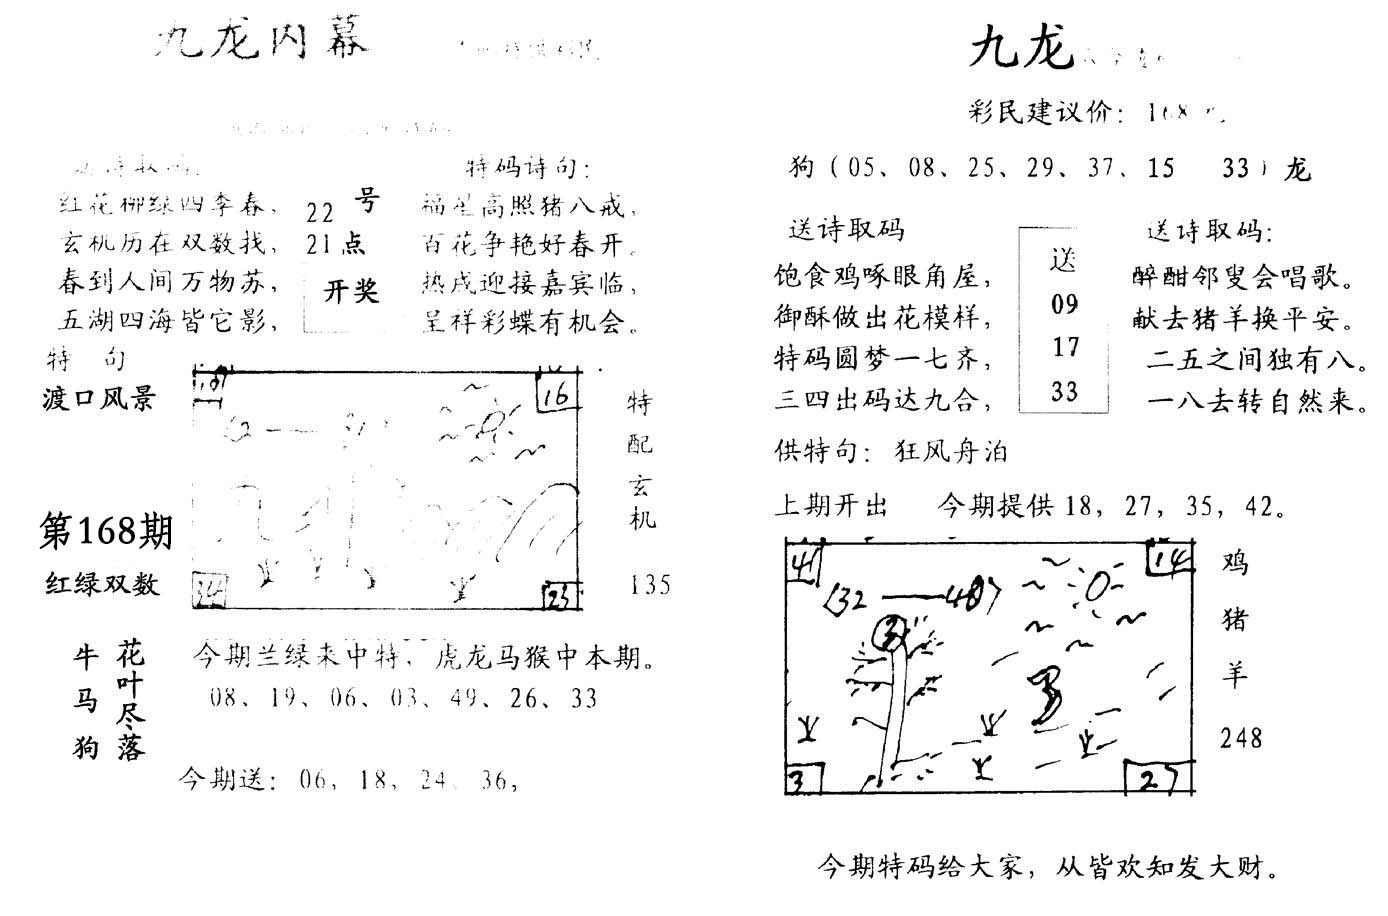 九龙内幕
送诗取码:
红花柳绿四季春，
玄机历在双数找，
春到人间万物苏，
五湖四海皆它影，
22 号
21点
开奖
特码诗句：
福星高照猪八戒，
百花争艳好春开。
热戌迎接嘉宾临，
呈祥彩蝶有机会。
特 句
渡口风景
第168期
红绿双数
16
34
23
特配玄机
135
牛马狗
花叶尽落
今期兰绿来中特，虎龙马猴中本期。
08、19、06、03、49、26、33
今期送：06，18，24、36，
九龙
彩民建议价：168
狗（05、08、25、29、37、15 33）龙
送诗取码
饱食鸡啄眼角屋，
御酥做出花模样，
特码圆梦一七齐，
三四出码达九合，
送
09
17
33
送诗取码：
醉酣邻叟会唱歌。
献去猪羊换平安。
二五之间独有八。
一八去转自然来。
供特句：狂风舟泊
上期开出 今期提供18，27，35，42。
41
14
32——40
3
3
27
鸡猪羊
248
今期特码给大家，从皆欢知发大财。